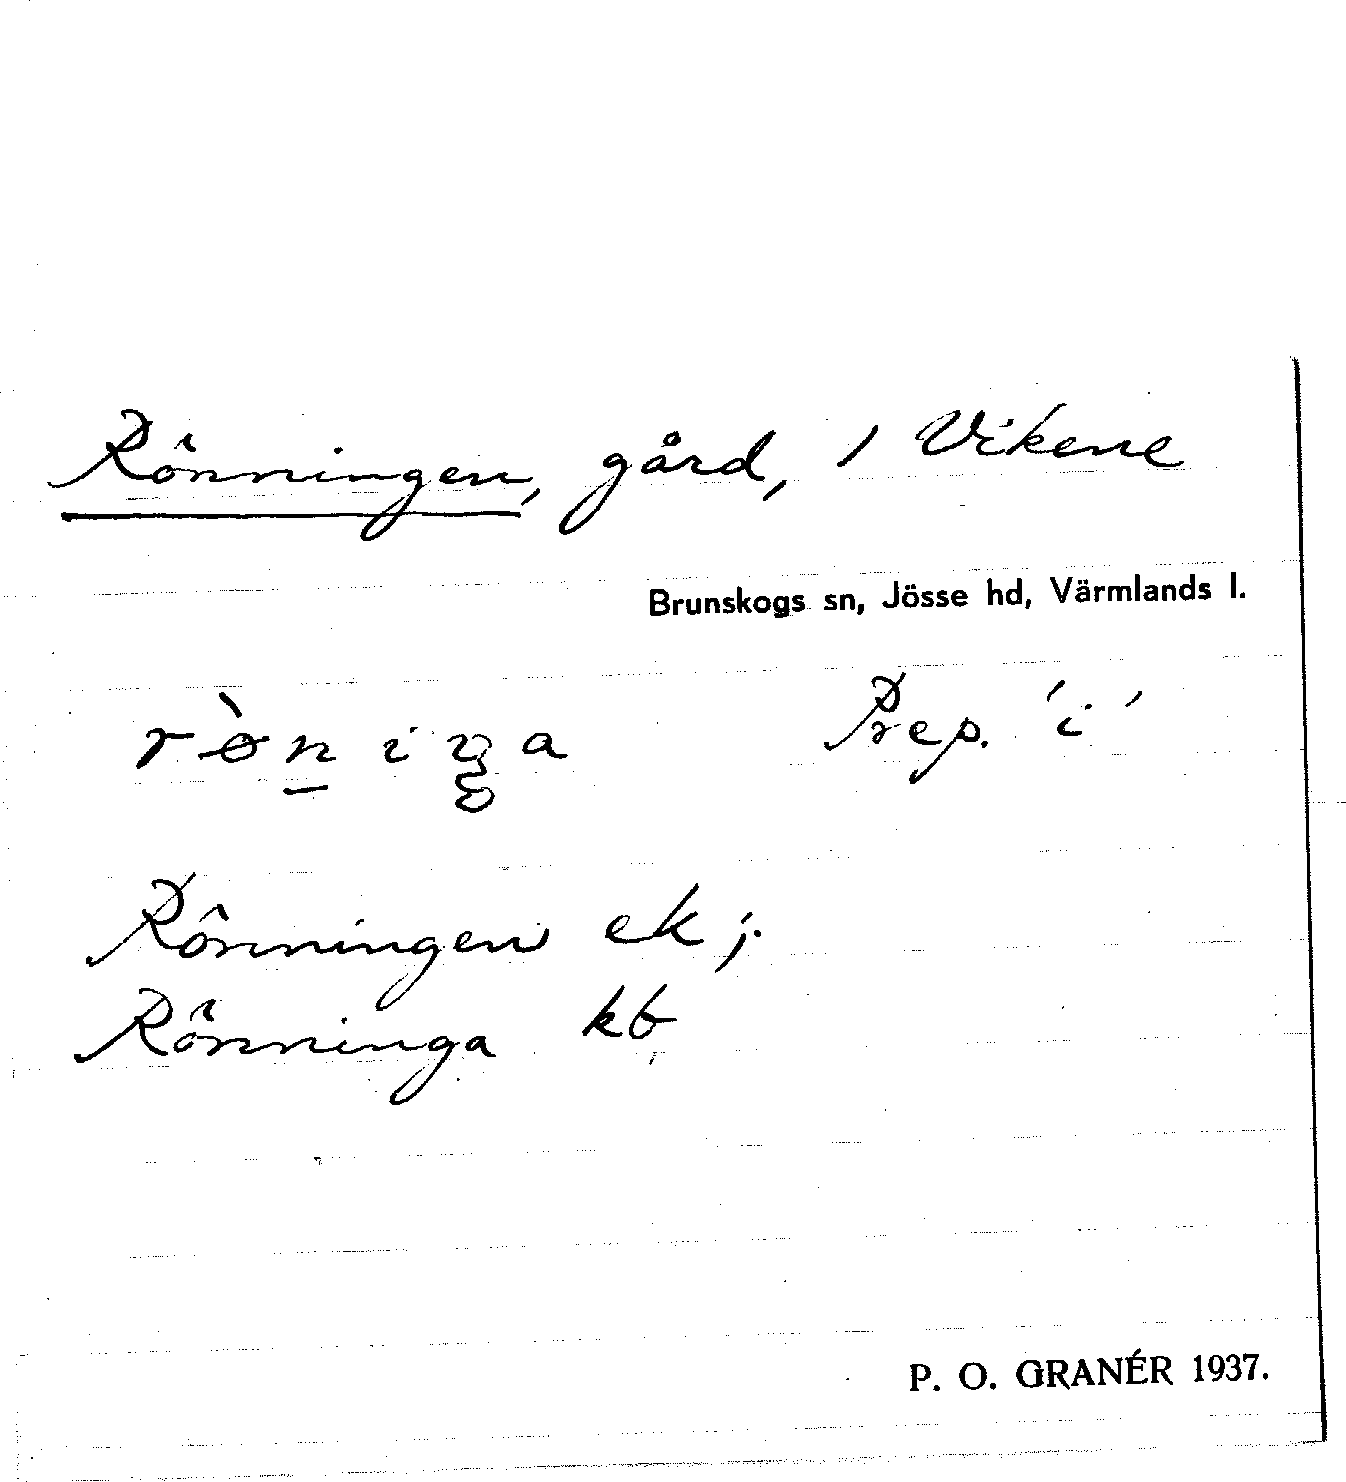 Rönningen, gård, 1 Vikene
Brunskogs sn, Jösse hd, Värmlands l.
rɵ̀n̠iŋa Prep. 'i'
Rönningen ek;
Rönninga kb
P. O. GRANÉR 1937.